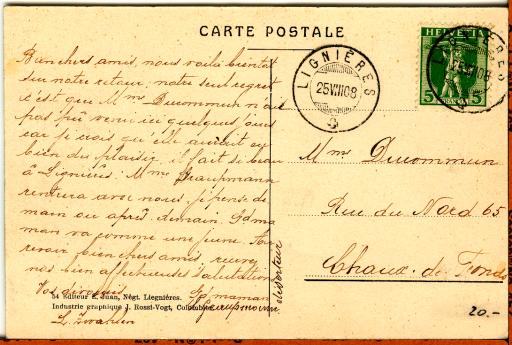 CARTE POSTALE
Bien chers amis, nous voilà bientôt
sur notre retour; notre seul regret
c'est que Mme Ducommun n'ait
pas pu venir ici quelques jours
car je crois qu'elle aurait eu
bien du plaisir, il fait si beau
à Lignières. Mme
rentrera avec nous je pense de-
main ou après-demain. Gd ma
man va comme une jeune. Au
revoir bien chers amis, recevez
nos bien affectueuses salutations
Vos dévoués Gd maman
54 Editeur E. Juan, Négt. Liegnières.
Industrie graphique J. Rossi-Vogt, Colombier
L.
LIGNIÈRES
25 VII 08
HELVETIA
5 5
LIGNIÈRES
25 VII 08
Mme Ducommun
Rue du Nord 65
Chaux-de-Fonds
20.-